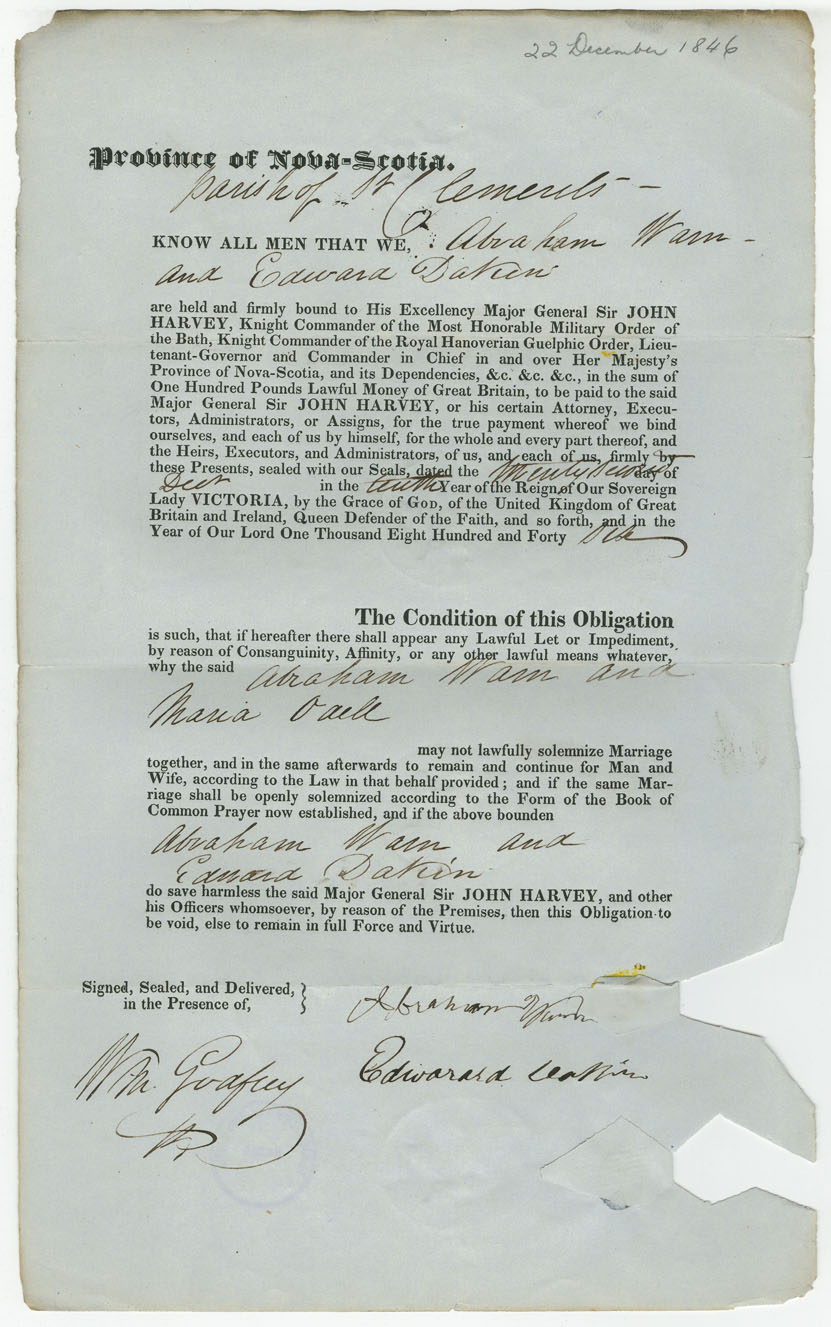 22 December 1846
Province of Nova-Scotia.
Parish of St Clements -
KNOW ALL MEN THAT WE, Abraham Warn -
and Edward Dakin
are held and firmly bound to His Excellency Major General Sir JOHN
HARVEY, Knight Commander of the Most Honorable Military Order of
the Bath, Knight Commander of the Royal Hanoverian Guelphic Order, Lieu-
tenant-Governor and Commander in Chief in and over Her Majesty's
Province of Nova-Scotia, and its Dependencies, &c. &c. &c., in the sum of
One Hundred Pounds Lawful Money of Great Britain, to be paid to the said
Major General Sir JOHN HARVEY, or his certain Attorney, Execu-
tors, Administrators, or Assigns, for the true payment whereof we bind
ourselves, and each of us by himself, for the whole and every part thereof, and
the Heirs, Executors, and Administrators, of us, and each of us, firmly by
these Presents, sealed with our Seals, dated the twenty second day of
Decr in the tenth Year of the Reign of Our Sovereign
Lady VICTORIA, by the Grace of GOD, of the United Kingdom of Great
Britain and Ireland, Queen Defender of the Faith, and so forth, and in the
Year of Our Lord One Thousand Eight Hundred and Forty Six
The Condition of this Obligation
is such, that if hereafter there shall appear any Lawful Let or Impediment,
by reason of Consanguinity, Affinity, or any other lawful means whatever,
why the said Abraham Warn and
Maria Odell
may not lawfully solemnize Marriage
together, and in the same afterwards to remain and continue for Man and
Wife, according to the Law in that behalf provided; and if the same Mar-
riage shall be openly solemnized according to the Form of the Book of
Common Prayer now established, and if the above bounden
Abraham Warn and
Edward Dakin
do save harmless the said Major General Sir JOHN HARVEY, and other
his Officers whomsoever, by reason of the Premises, then this Obligation to
be void, else to remain in full Force and Virtue.
Signed, Sealed, and Delivered,
in the Presence of,
Abraham Warn
Edwarard Dakin
Wm. Godfrey